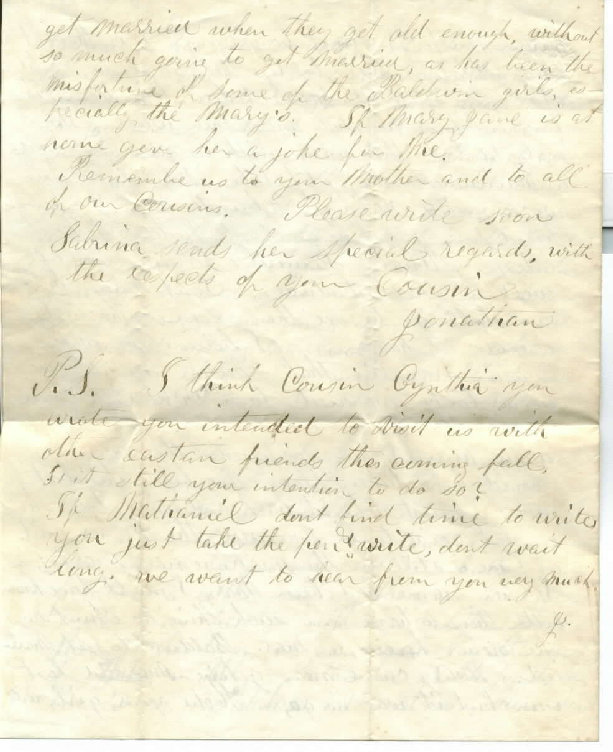 get married when they get old enough, without
so much going to get married, as has been the
misfortune of some of the Baldwin girls, es
pecially the Mary's. If Mary Jane is at
home give her a joke for me.
Remember us to your Mother and to all
of our Cousins. Please write soon
Sabrina sends her special regards, with
the respects of your Cousin
Jonathan
P.S. I think Cousin Cynthia you
wrote you intended to visit us with
other eastan friends this coming fall.
Is it still your intention to do so?
If Nathaniel dont find time to write
you just take the pen & write, dont wait
long. we want to hear from you very much.
J.